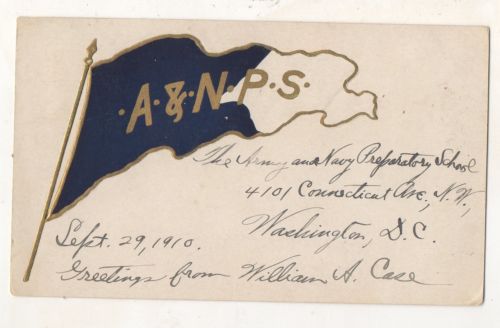 ·A·&·N·P·S·
The Army and Navy Preparatory School
4101 Connecticut Ave., N.W.,
Washington, D.C.
Sept. 29, 1910.
Greetings from William A. Case